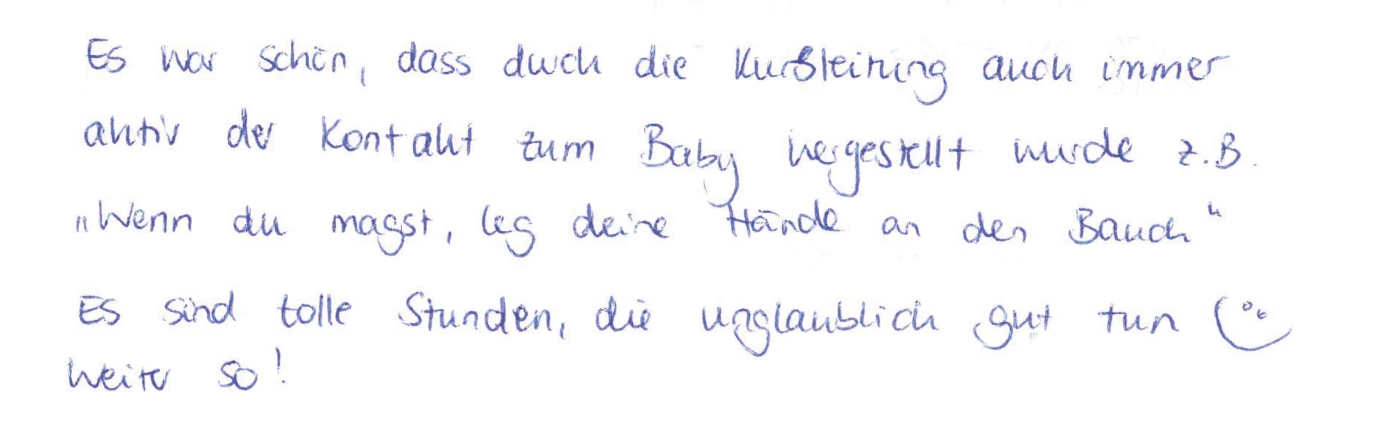 Es war schön, dass durch die Kursleitung auch immer
aktiv der Kontakt zum Baby hergestellt wurde z.B.
„Wenn du magst, leg deine Hände an den Bauch“
Es sind tolle Stunden, die unglaublich gut tun
Weiter so!